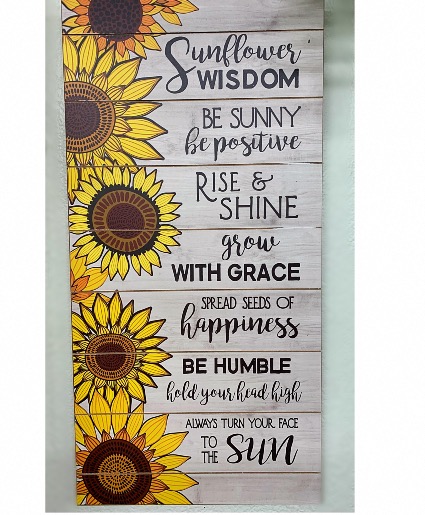 Sunflower
WISDOM
BE SUNNY
be positive
RISE &
SHINE
grow
WITH GRACE
SPREAD SEEDS OF
happiness
BE HUMBLE
hold your head high
ALWAYS TURN YOUR FACE
TO
THE SUN